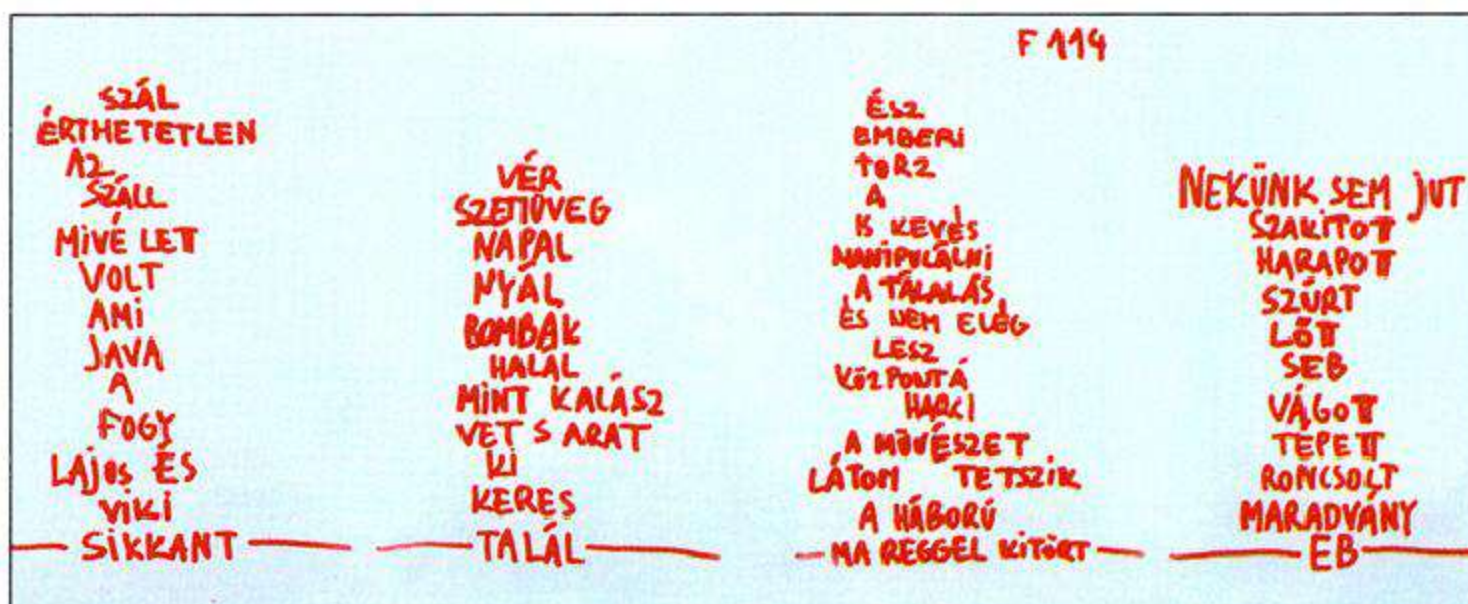 F 114
SZÁL
ÉRTHETETLEN
AZ
SZÁLL
MIVÉ LETT
VOLT
AMI
JAVA
A
FOGY
LAJOS ÉS
VIKI
SIKKANT
VÉR
SZEMÜVEG
NAPAL
NYÁL
BOMBÁK
HALÁL
MINT KALÁSZ
VET S ARAT
KI
KERES
TALÁL
ÉSZ
EMBERI
TORZ
A
IS KEVÉS
MANIPULÁLNI
A TÁLALÁS
ÉS NEM ELÉG
LESZ
KÖZPONTÁ
HARCI
A MŰVÉSZET
LÁTOM TETSZIK
A HÁBORÚ
MA REGGEL KITÖRT
NEKÜNK SEM JUT
SZAKÍTOTT
HARAPOTT
SZÚRT
LŐTT
SEB
VÁGOTT
TÉPETT
RONCSOLT
MARADVÁNY
EB